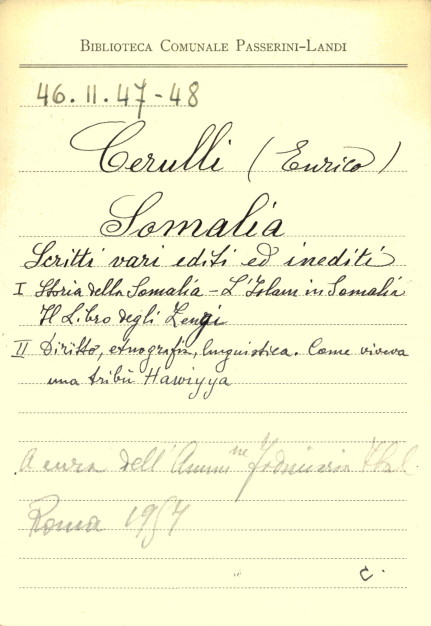 BIBLIOTECA COMUNALE PASSERINI-LANDI
46.II.47-48
Cerulli (Enrico)
Somalia
Scritti vari editi ed inediti
I Storia della Somalia - L'Islam in Somalia
Il Libro degli Zengi
II Diritto, etnografia, linguistica. Come viveva
una tribù Hawiyya
A cura dell'Ammi ne Fiduciaria Ital
Roma 1957
C.